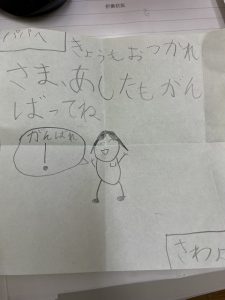 パパへ
きょうもおつかれ
さま、あしたもがん
ばってね
がんばれ
！
さわよ